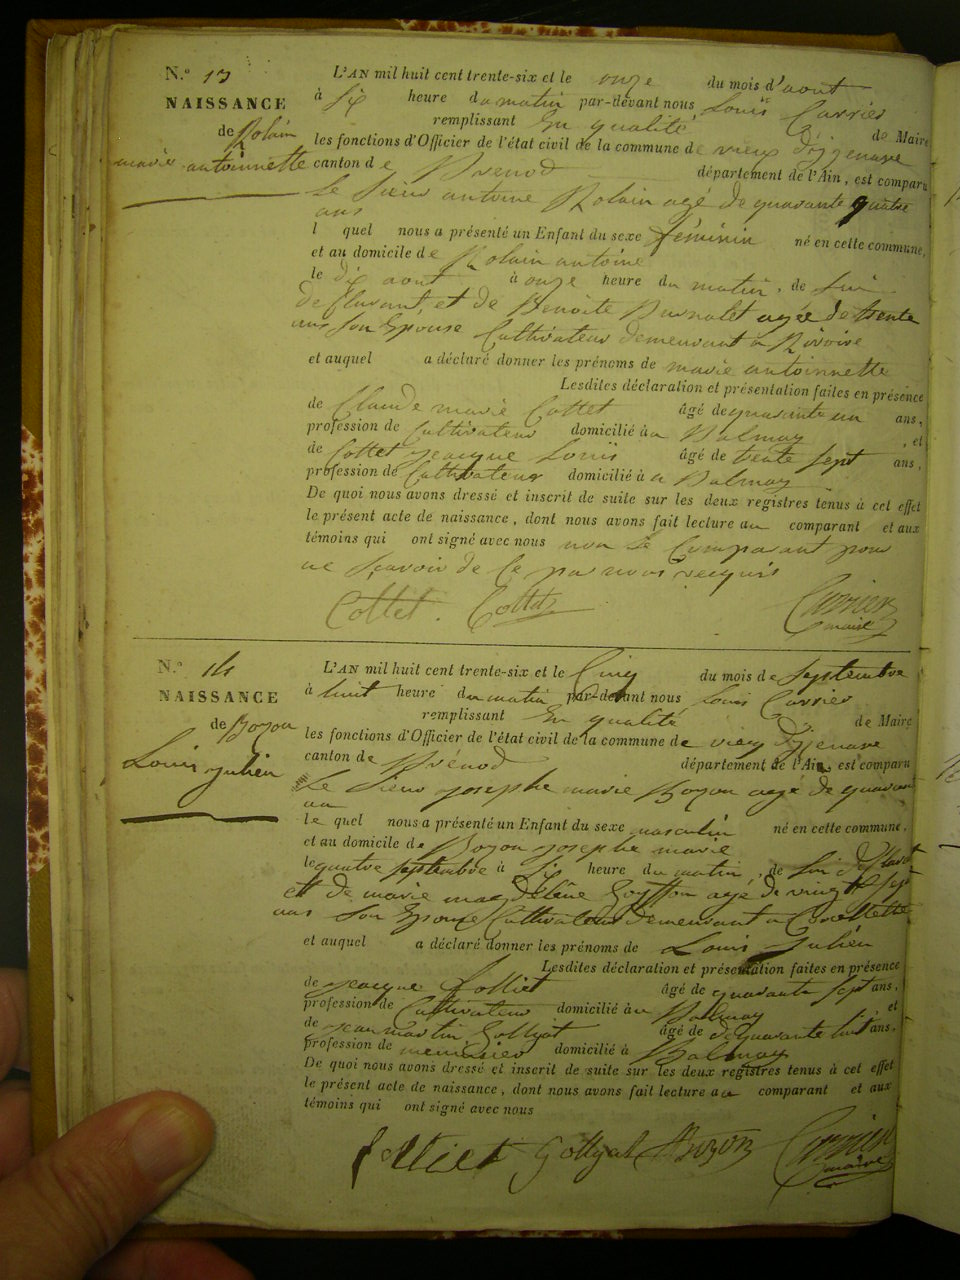 N.º 13
NAISSANCE
de Rolain
marie antoinnette
L'AN mil huit cent trente-six et le onze du mois d'août
à six heure du matin par-devant nous Louis Carrier
remplissant En qualité de Maire
les fonctions d'Officier de l'état civil de la commune de vieux d'izenave
canton de Brenod département de l'Ain, est comparu
Le Sieur antoine Rolain agé de quarante quatre
ans
l quel nous a présenté un Enfant du sexe féminin né en cette commune,
et au domicile de Rolain antoine
le dix aout à onze heure du matin, de Lui
Declarant, et de Benoite agée de trente
ans Son Epouse Cultivateur demeurant a
et auquel a déclaré donner les prénoms de marie antoinnette
Lesdites déclaration et présentation faites en présence
de Claude marie Cottet âgé de quarante un ans,
profession de Cultivateur domicilié à a Balmay , et
de Cottet jacque Louis âgé de trente sept ans,
profession de Cultivateur domicilié à a Balmay
De quoi nous avons dressé et inscrit de suite sur les deux registres tenus à cet effet
le présent acte de naissance, dont nous avons fait lecture au comparant et aux
témoins qui ont signé avec nous non Le Comparant pour
ne Sçavoir de Ce par nous requis
Cottet. Cottet Carrier
maire
N.º 14
NAISSANCE
de Bozon
Louis julien
L'AN mil huit cent trente-six et le Cinq du mois de Septembre
à huit heure du matin par-devant nous Louis Carrier
remplissant En qualité de Maire
les fonctions d'Officier de l'état civil de la commune de vieux d'izenave
canton de Brénod département de l'Ain, est comparu
Le Sieur josephe marie Bozon agé de quarante
un
le quel nous a présenté un Enfant du sexe masculin né en cette commune,
et au domicile de Bozon josephe marie
le quatre septembre à six heure du matin, de Lui Declarant
et de marie magdelaine agé de vingt sept
ans Son Epouse Cultivateur demeurant a
et auquel a déclaré donner les prénoms de Louis Julien
Lesdites déclaration et présentation faites en présence
de jacque Folliet âgé de quarante sept ans,
profession de Cultivateur domicilié à a Balmay , et
de jean martin Gollyat âgé de de quarante huit ans,
profession de menuisier domicilié à Balmay
De quoi nous avons dressé et inscrit de suite sur les deux registres tenus à cet effet
le présent acte de naissance, dont nous avons fait lecture au comparant et aux
témoins qui ont signé avec nous
folliet Gollyat Bozon Carrier
maire